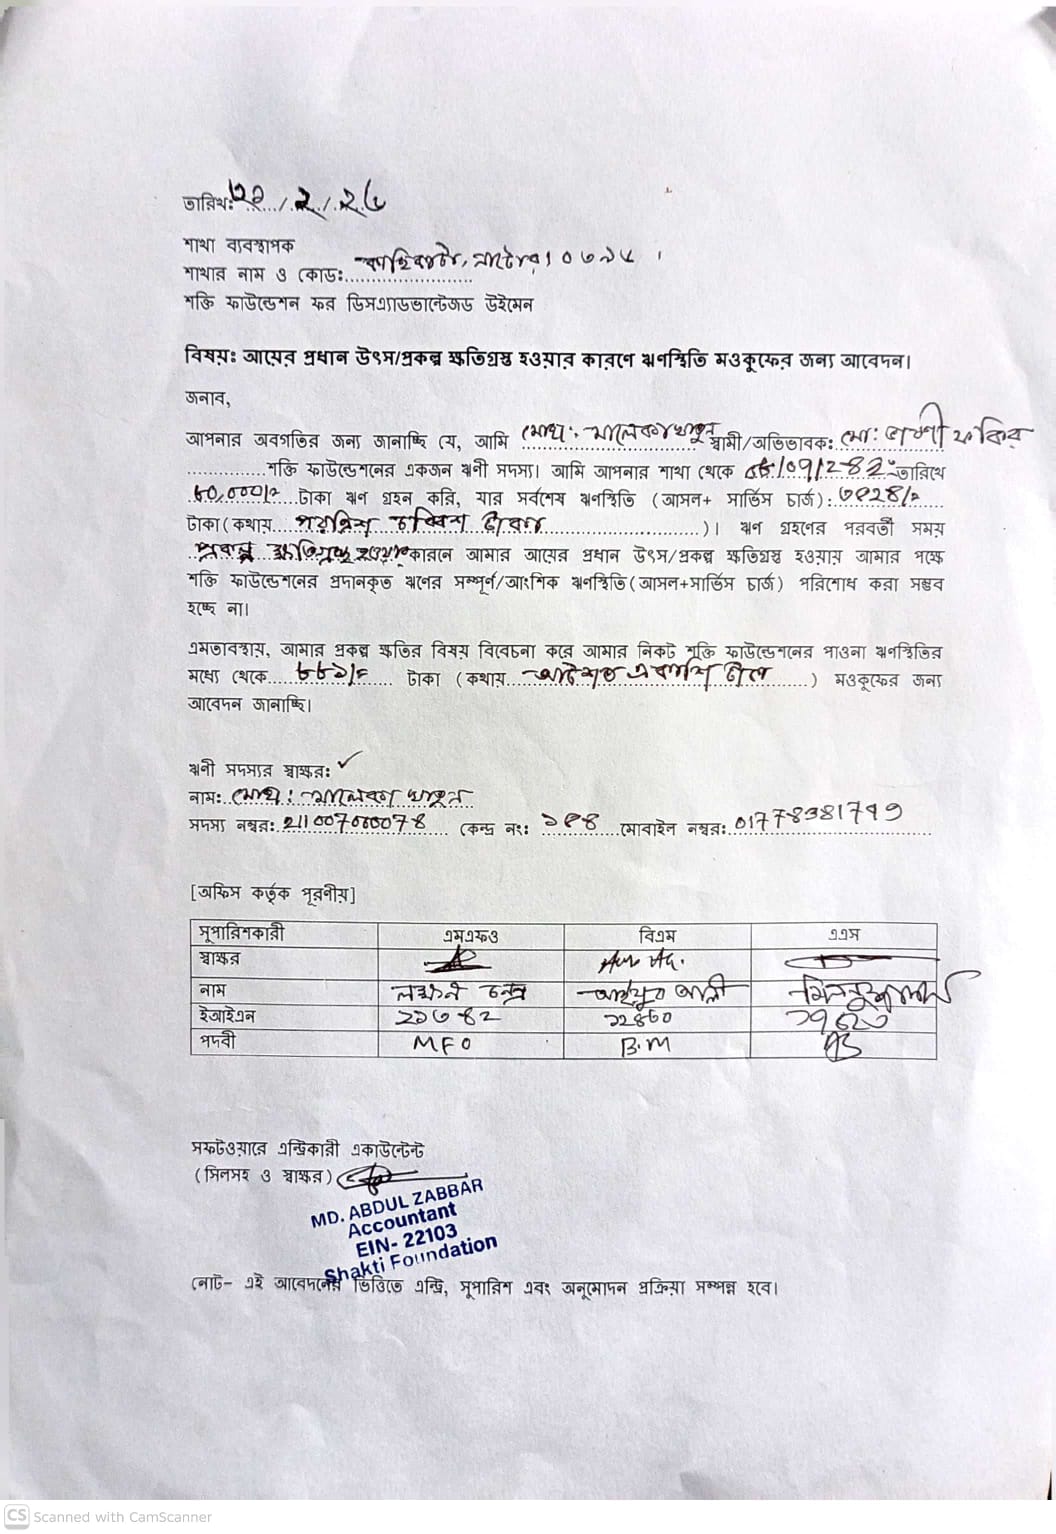 তারিখঃ ২২/২/২৬
শাখা ব্যবস্থাপক
শাখার নাম ও কোডঃ নাটোর।
শক্তি ফাউন্ডেশন ফর ডিসএ্যাডভান্টেজড উইমেন
বিষয়ঃ আয়ের প্রধান উৎস/প্রকল্প ক্ষতিগ্রস্ত হওয়ার কারণে ঋণস্থিতি মওকুফের জন্য আবেদন।
জনাব,
আপনার অবগতির জন্য জানাচ্ছি যে, আমি মোছা: মালেকা খাতুন স্বামী/অভিভাবক: মো: ফকির
শক্তি ফাউন্ডেশনের একজন ঋণী সদস্য। আমি আপনার শাখা থেকে তারিখে
৮০,০০০/= টাকা ঋণ গ্রহন করি, যার সর্বশেষ ঋণস্থিতি (আসল+ সার্ভিস চার্জ):
টাকা (কথায় চব্বিশ টাকা)। ঋণ গ্রহণের পরবর্তী সময়
প্রকল্প ক্ষতিগ্রস্থ হওয়ার কারনে আমার আয়ের প্রধান উৎস/প্রকল্প ক্ষতিগ্রস্ত হওয়ায় আমার পক্ষে
শক্তি ফাউন্ডেশনের প্রদানকৃত ঋণের সম্পূর্ণ/আংশিক ঋণস্থিতি (আসল+সার্ভিস চার্জ) পরিশোধ করা সম্ভব
হচ্ছে না।
এমতাবস্থায়, আমার প্রকল্প ক্ষতির বিষয় বিবেচনা করে আমার নিকট শক্তি ফাউন্ডেশনের পাওনা ঋণস্থিতির
মধ্যে থেকে ৮৮১/= টাকা (কথায় আটশত একাশি টাকা) মওকুফের জন্য
আবেদন জানাচ্ছি।
ঋণী সদস্যর স্বাক্ষর: ✓
নাম: মোছা: মালেকা খাতুন
সদস্য নম্বর: কেন্দ্র নং: মোবাইল নম্বর:
[অফিস কর্তৃক পূরণীয়]
সুপারিশকারী এমএফও বিএম এএস
স্বাক্ষর
নাম লক্ষন চন্দ্র আইয়ুব আলী
ইআইএন
পদবী MFO B.M AS
সফটওয়ারে এন্ট্রিকারী একাউন্টেন্ট
(সিলসহ ও স্বাক্ষর)
MD. ABDUL ZABBAR
Accountant
EIN- 22103
Shakti Foundation
নোট- এই আবেদনের ভিত্তিতে এন্ট্রি, সুপারিশ এবং অনুমোদন প্রক্রিয়া সম্পন্ন হবে।
CS Scanned with CamScanner